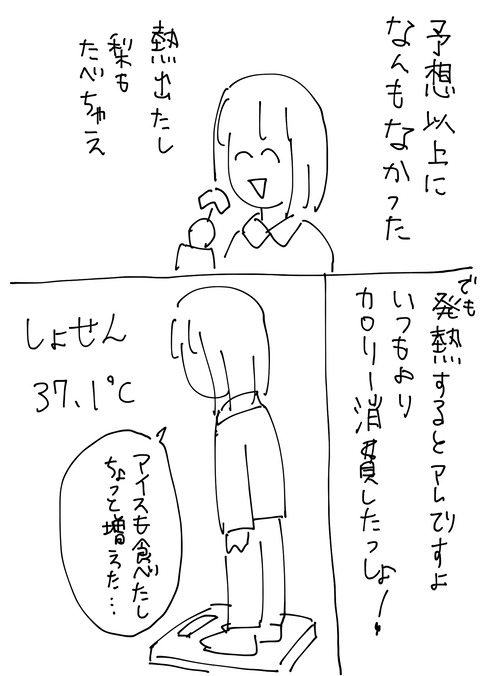 予想以上に
なんもなかった
熱出たし
梨も
たべちゃえ
でも
発熱するとアレですよ
いつもより
カロリー消費したっしょー!
しょせん
37.1℃
アイスも食べたし
ちょっと増えた…